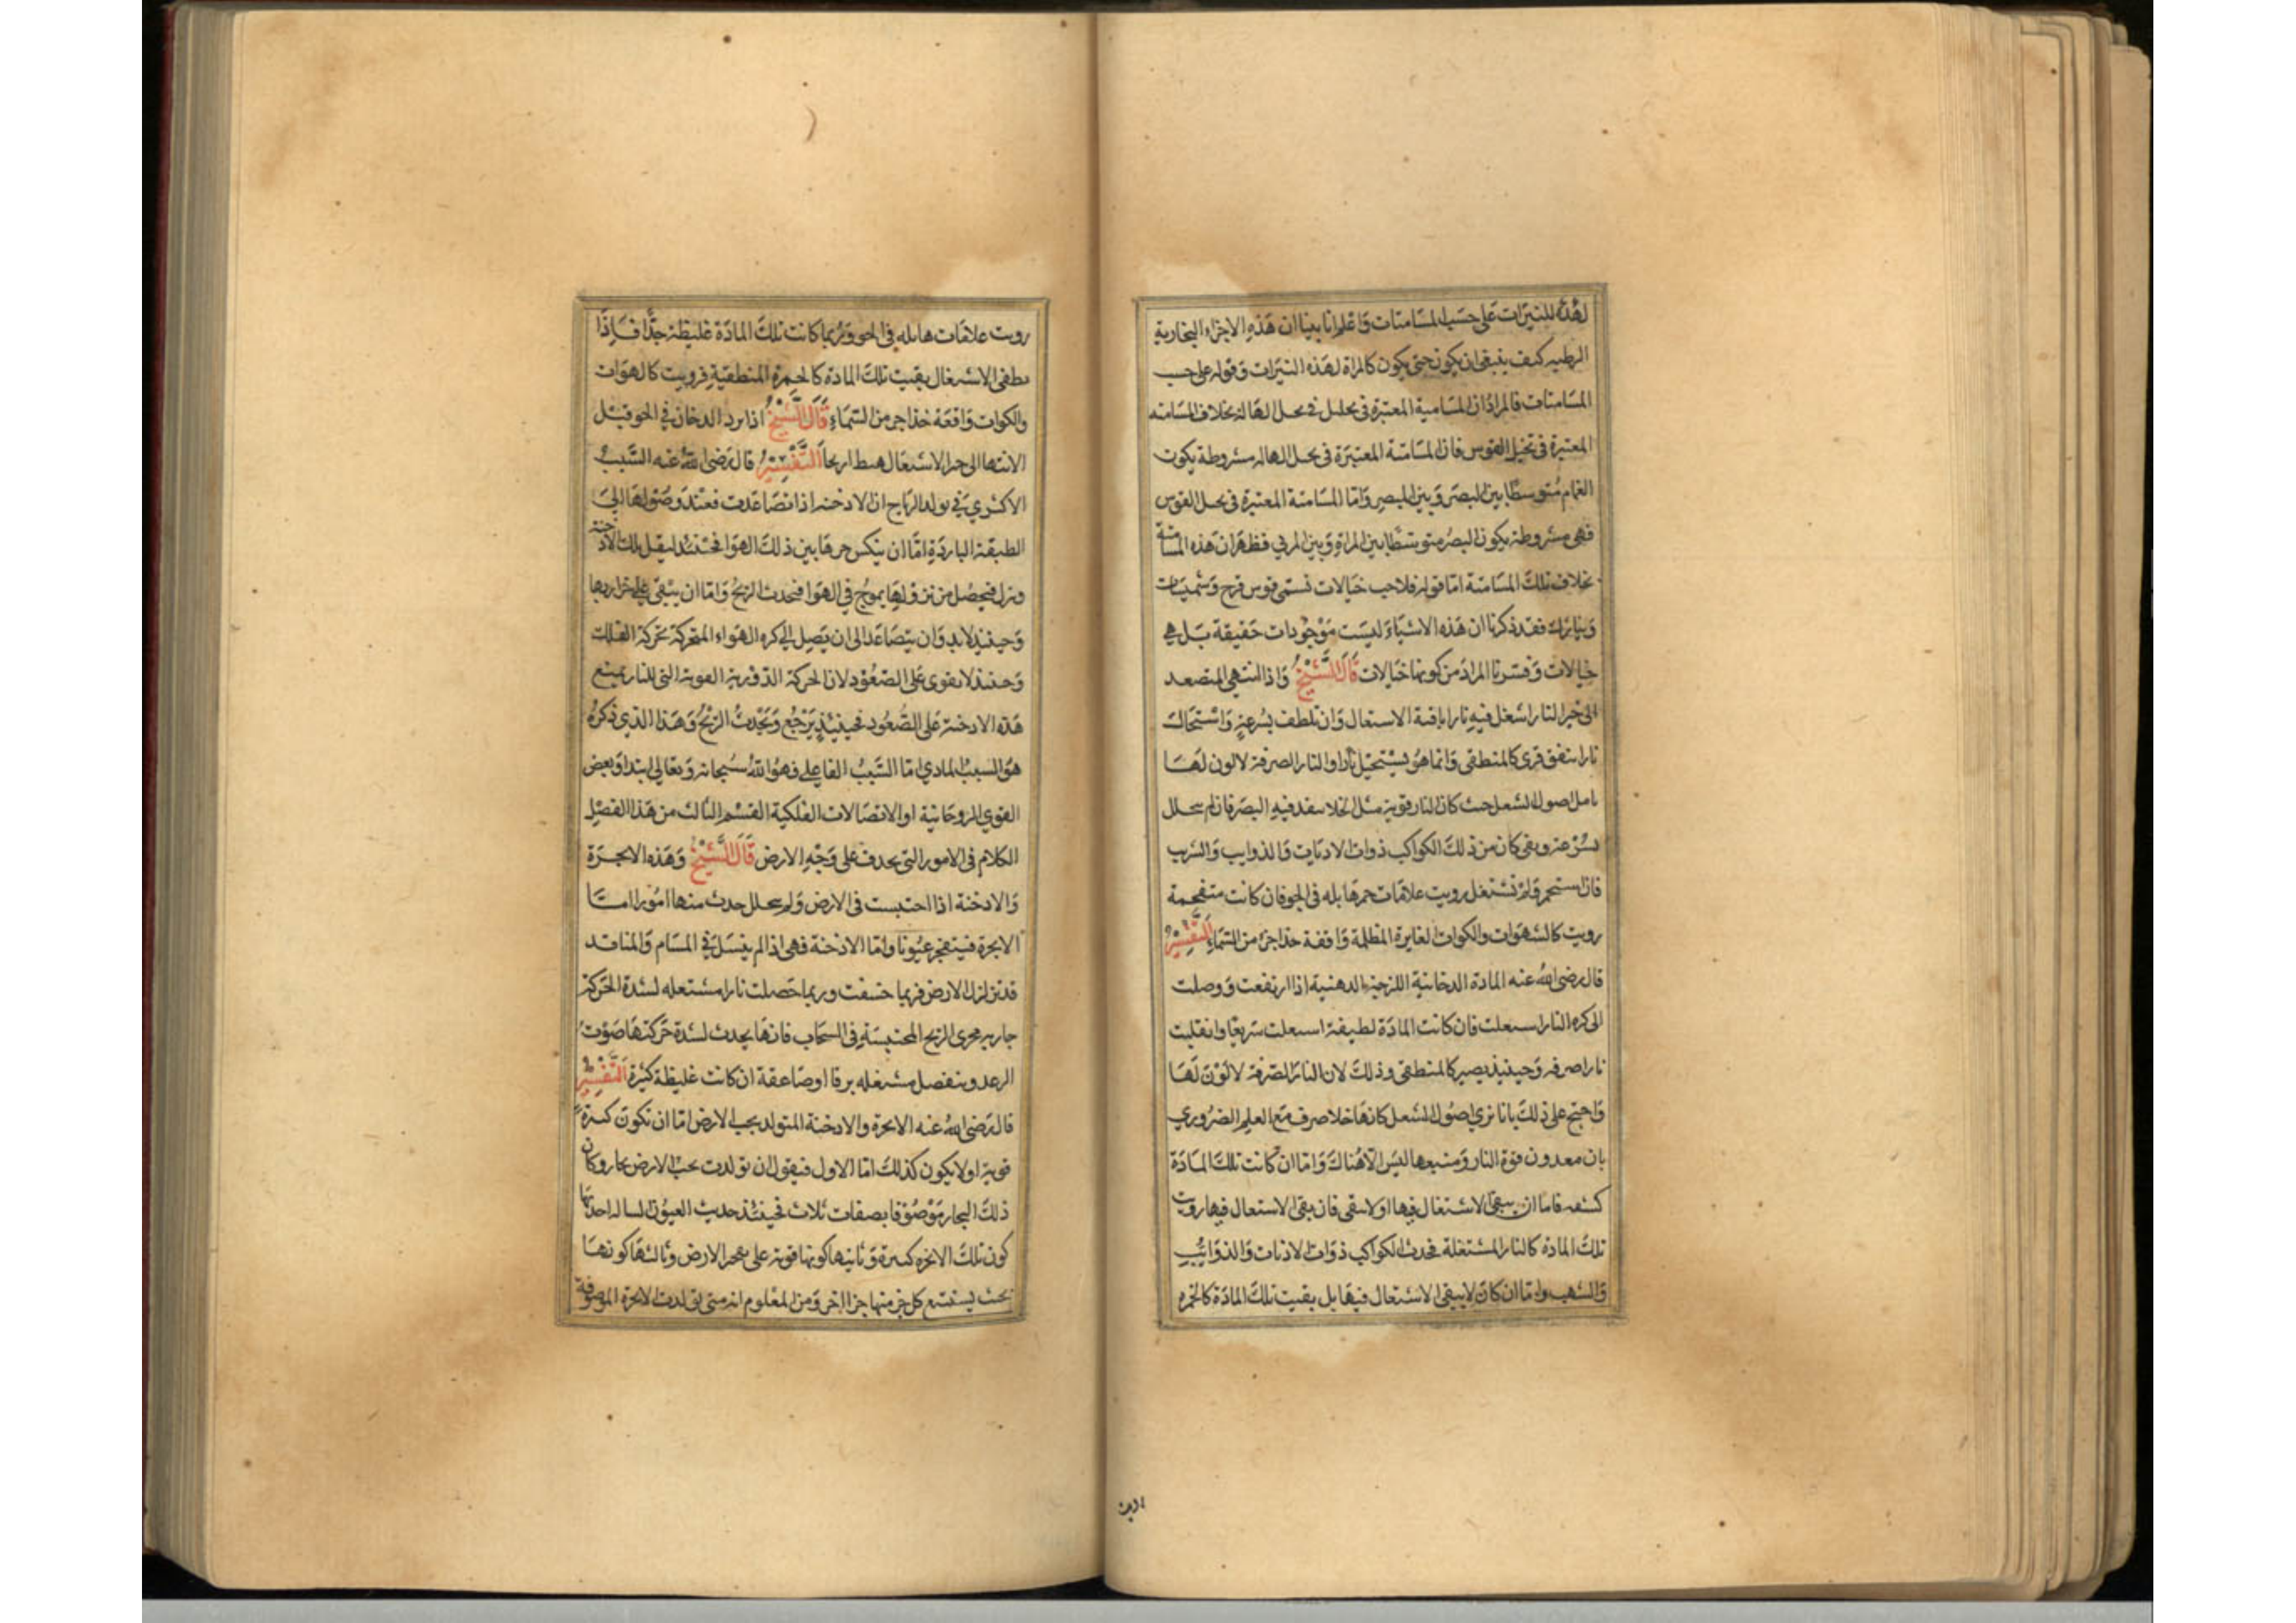 لهذه النيرات على حسب المسامتات واعلم انا بينا ان هذه الاجزاء البخارية
الرطبه كيف ينبغى ان يكون حتى يكون كالمراة لهذه النيرات وقوله على حسب
المسامتات فالمراد ان المسامتة المعتبرة فى تخيل الهالة بخلاف المسامته
المعتبرة فى تخيل القوس فان المسامتة المعتبرة فى تخيل الهاله مشروطة بكون
الغمام متوسطا بين البصر وبين المبصر واما المسامتة المعتبرة فى تخيل القوس
فهى مشروطة بكون البصر متوسطا بين المراة وبين المرئي فظهر ان هذه المسامتة
بخلاف تلك المسامتة اما قوله خيالات تسمى قوس قزح وشميسات
ونيازك فقد ذكرنا ان هذه الاشياء ليست موجودات حقيقة بل هي
خيالات وفسرنا المراد من كونها خيالات قال الشيخ واذا انتهى المتصعد
الى حيز النار اشتعل فيه نارا الاستعال وان تلطف بسرعة واستحالت
نارا شفق فرى كالمنطفى وانما هو يستحيل نارا والنار الصرفة لا لون لها
تامل اصول الشعل حيث كان النار قوية مثل الخلا ينفد فيه البصر فان لم يتحلل
بسرعة وبقى كان من ذلك الكواكب ذوات الاذناب والذوايب والشهب
فان استجمر ولم تشتعل رويت علامات حمر هايله فى الجو فان كانت متفحمة
رويت كالهوات والكوات الغايرة المظلمة واقفة حذا جزء من السماء التفسير
قال رضى الله عنه المادة الدخانية اللزجة الدهنية اذا ارتفعت ووصلت
الى كره النار اشتعلت فان كانت المادة لطيفة اشتعلت سريعا وانقلبت
نارا صرفه وحينيذ يصير كالمنطفى وذلك لان النار الصرفة لا لون لها
واحتج على ذلك بانا نرى اصول الشعل كانها خلا صرف مع العلم الضروري
بان معدن قوة النار ومنبعها ليس الا هناك واما ان كانت تلك المادة
كثيفه فاما ان يبقى الاشتعال فيها او لا يبقى فان بقى الاستعال فيها رويت
تلك المادة كالنار المشتعلة فحدث الكواكب ذوات الاذناب والذوايب
والشهب واما ان كان لا يبقى الاشتعال فيها بل بقيت تلك المادة كالجمره
رويت
رويت علامات هايله فى الجو وربما كانت تلك المادة غليظة جدا فاذا
طفى الاشتعال بقيت تلك المادة كالجمرة المنطفية فرويت كالهوات
والكوات واقعة حذا جزء من السماء قال الشيخ اذا برد الدخان فى الجو قبل
الانتها الى حيز الاشتعال هبط ارياحا التفسير قال رضى الله عنه السبب
الاكثري فى تولد الرياح ان الادخنه اذا تصاعدت فعند وصولها الى
الطبقة الباردة اما ان ينكسر حرها ببرد ذلك الهوا فحينئذ يثقل تلك الادخنة
وتنزل فيحصل من نزولها تموج فى الهوا فيحدث الريح واما ان يبقى على حرارتها
وحينيذ لابد وان يتصاعد الى ان يصل الى كره الهواء المتحركة بحركة الفلك
وحينيذ لا يقوى على الصعود لان الحركة الدورية القوية التى للنار يمنع
هذه الادخنة على الصعود فحينيذ يرجع ويحدث الريح وهذا الذى ذكره
هو السبب المادي اما السبب الفاعلى فهو الله سبحانه وتعالى ابتدا وبعض
القوى الروحانية او الاتصالات الفلكية القسم الثالث من هذا الفصل
الكلام فى الامور التى يحدث على وجه الارض قال الشيخ وهذه الابخرة
والادخنة اذا احتبست فى الارض ولم يتحلل حدث منها امور اما
الابخرة فيتفجر عيونا واما الادخنة فهى اذا لم ينسل فى المسام والمنافد
قد تزلزل الارض فربما خسفت وربما حصلت نارا مشتعله لشدة الحركة
جاريه مجرى الريح المحتبسة فى السحاب فانها يحدث لشدة حركتها صوت
الرعد وينفصل مشتعله برقا او صاعقة ان كانت غليظة كثيرة التفسير
قال رضى الله عنه الابخرة والادخنة المتولد تحت الارض اما ان تكون كثيرة
قوية او لا يكون كذلك اما الاول فنقول ان تولدت تحت الارض بخار وكان
ذلك البخار موصوفا بصفات ثلاث فحينئذ حديث العيون احدتها
كون تلك الابخره كثيرة وثانيها كونها قوية على تفجر الارض وثالثها كونها
بحيث يستتبع كل جزء منها جزا اخر ومن المعلوم انه متى تولدت الابخرة الموصوفة